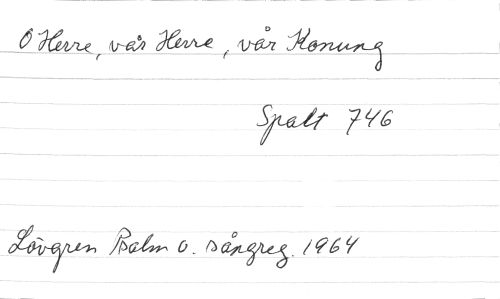 O Herre, vår Herre, vår Konung
Spalt 746
Lövgren Psalm o. sångreg. 1964